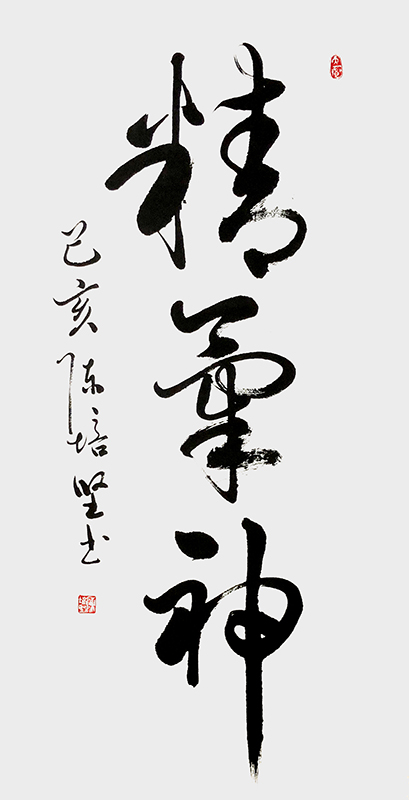 精氣神
己亥陈培坚书